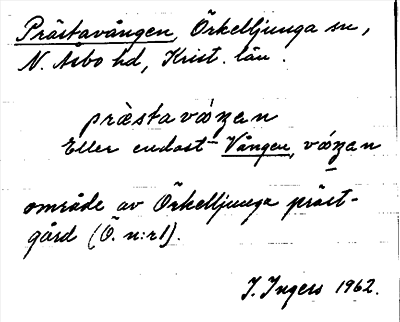 Prästavången, Örkelljunga sn,
N. Åsbo hd, Krist. län.
præ̀stavá̊ŋan
Eller endast Vången, vá̊ŋan
område av Örkelljunga präst-
gård (Ö. n:r 1).
I. Ingers 1962.